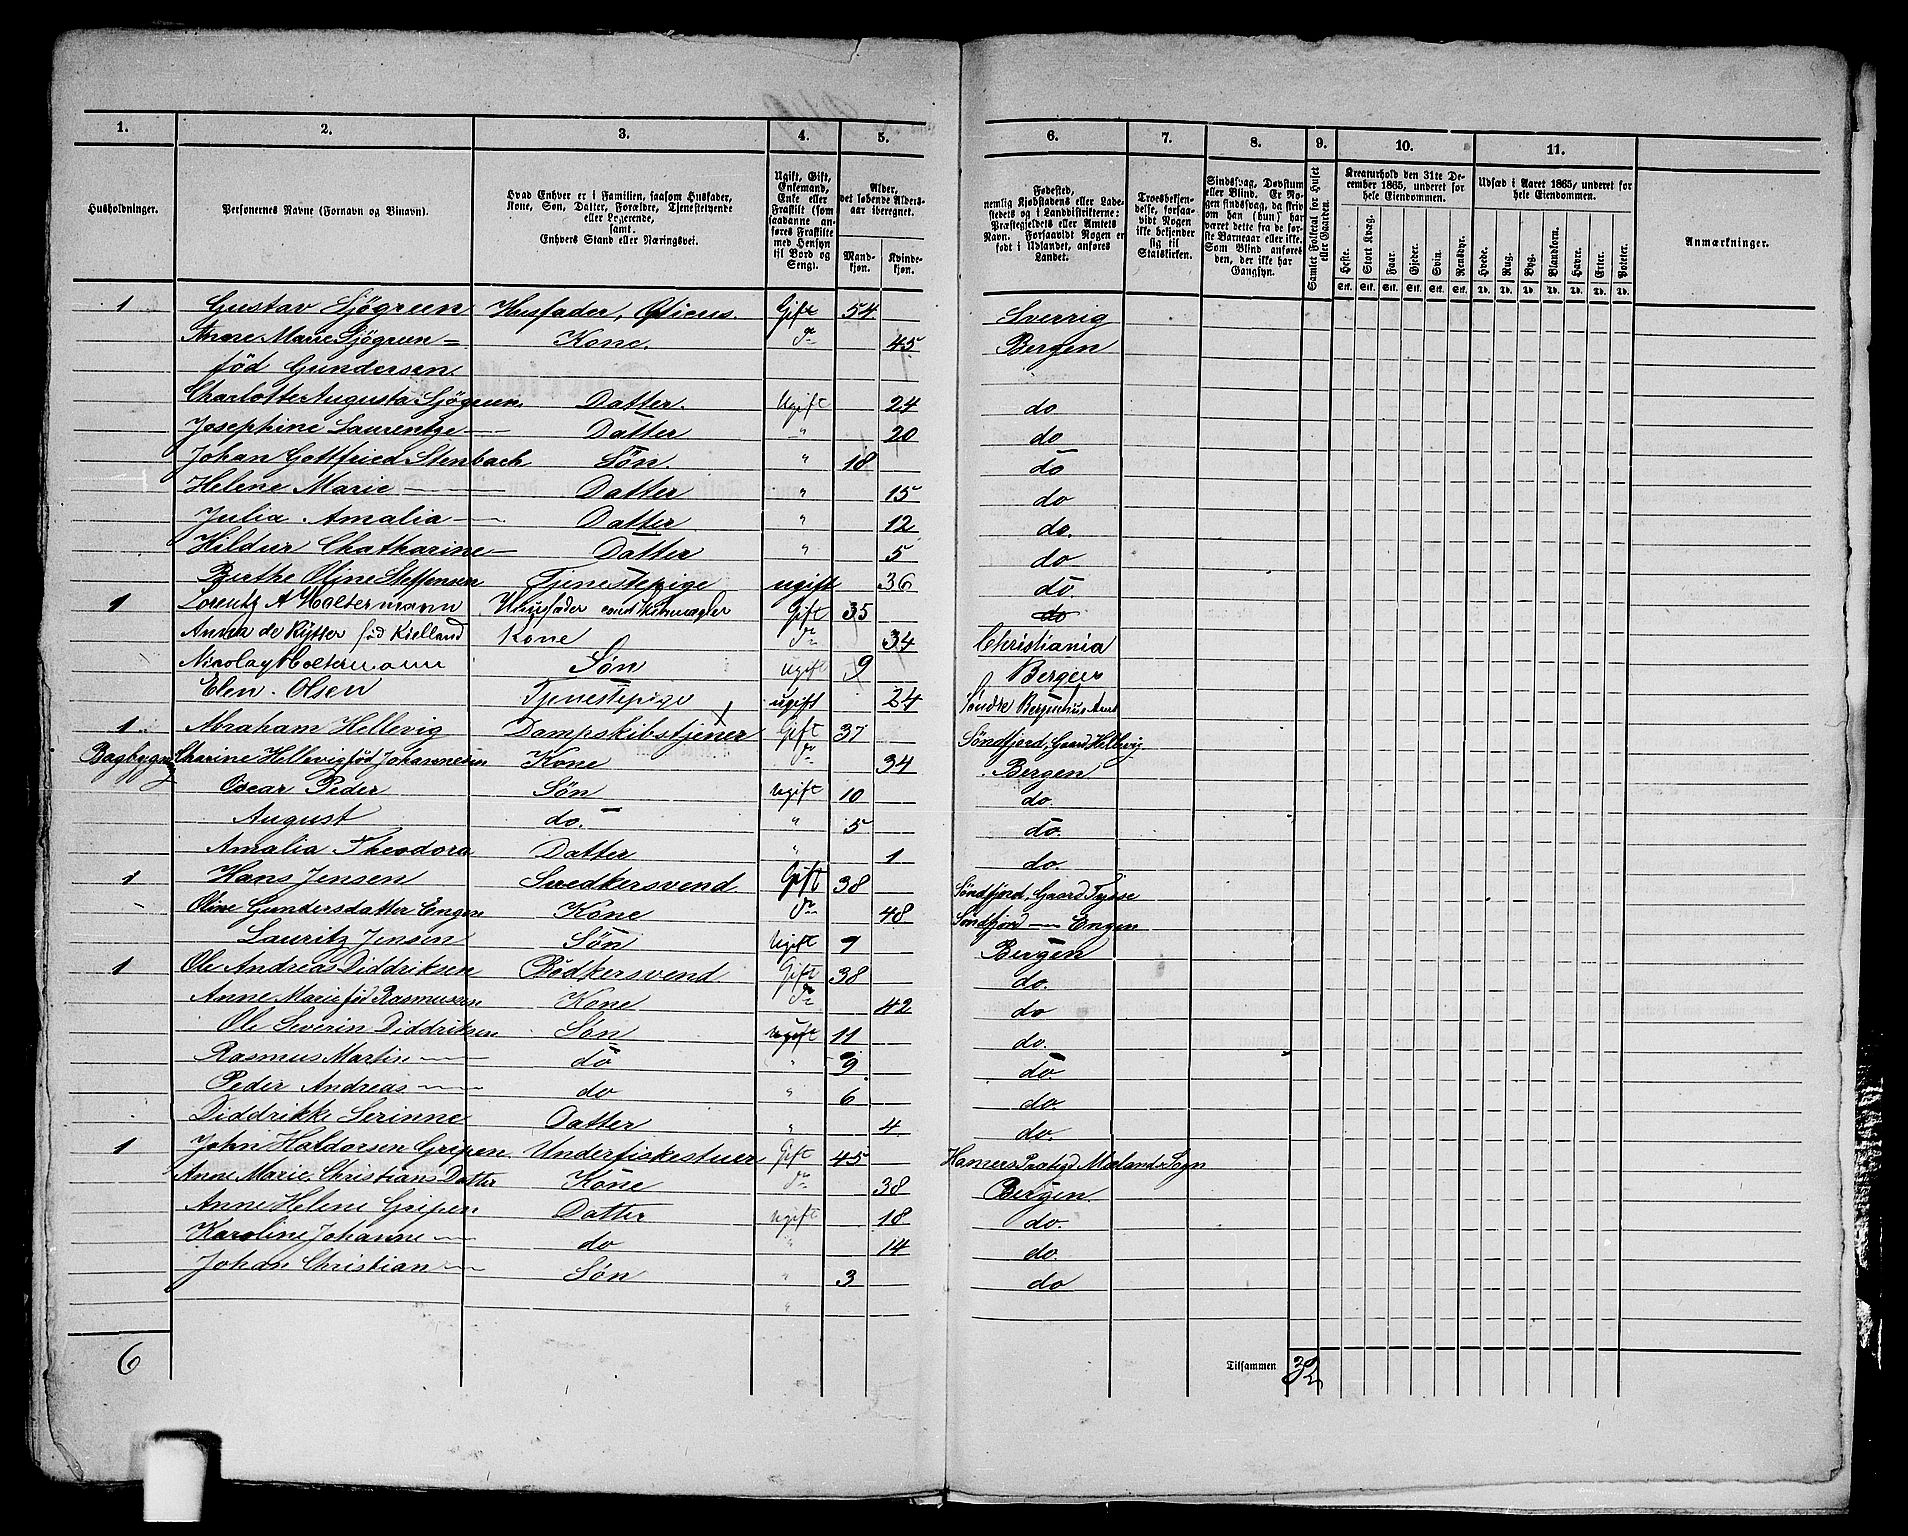 1. 2. 3. 4. 5. 6. 7. 8. 9. 10. 11.
Husholdninger.
Personernes Navne (Fornavn og Binavn).
Hvad Enhver er i Familien, saasom Husfader,
Kone, Søn, Datter, Forældre, Tjenestetyende
eller Logerende,
samt
Enhvers Stand eller Næringsvei.
Ugift, Gift,
Enkemand,
Enke eller
Fraskilt (som
saadanne an-
føres Fraskilte
med Hensyn
til Bord og
Seng).
Alder,
det løbende Alders-
aar iberegnet.
Mand-
kjøn.
Kvinde-
kjøn.
Fødested,
nemlig Kjøbstadens eller Lade-
stedets og i Landdistrikterne:
Præstegjeldets eller Amtets
Navn. Forsaavidt Nogen er
født i Udlandet, anføres
Landet.
Troesbekjen-
delse, forsaa-
vidt Nogen
ikke bekjender
sig til
Statskirken.
Sindssvag, Døvstum
eller Blind. Er No-
gen sindssvag, da skriv
om han (hun) har
været dette fra de før-
ste Barneaar eller ikke.
Som Blind anføres
den, der ikke har
Gangsyn.
Samlet Folketal for Huset
eller Gaarden.
Kreaturhold den 31te De-
cember 1865, underet for
hele Eiendommen.
Heste. Stort Kvæg. Faar. Gjeder. Svin. Rensdyr.
Stk. Stk. Stk. Stk. Stk. Stk.
Udsæd i Aaret 1865, underet for
hele Eiendommen.
Hvede. Rug. Byg. Blandkorn. Havre. Erter. Poteter.
Td. Td. Td. Td. Td. Td. Td.
Anmærkninger.
1 Gustav Sjögreen Husfader, Gift 54 Sverrig
Anne Marie Sjögreen = Kone. do 45 Bergen
föd Gundersen
Charlotte Augusta Sjögreen Datter. Ugift 24 do
Josephine Laurentze — Datter " 20 do
Johan Gottfried Stenbach Søn. " 18 do
Helene Marie — Datter " 15 do
Julia Amalia — Datter " 12 do.
Hildur Chatharine — Datter " 5 do
Berthe Oline Steffensen Tjenestepige ugift 36 do
1 Lorentz A Holtermann Huusfader Gift 35 do
Anna de Rÿtter föd Kielland Kone do 34 Christiania
Nicolay Holtermann Søn Ugift 9 Bergen
Elen Olsen Tjenestepige ugift 24 Søndre Bergenhus Amt
1 Abraham Hellevig Dampskibstjener Gift 37 Søndfjord, Gaard Hellevig
Bagbygn. Charine Hellevig föd Johannesen Kone do 34 Bergen
Oscar Peder Søn Ugift 10 do.
August do. " 5 do.
Amalia Theodora Datter " 1 do.
1 Hans Jensen Snedkersvend Gift 38 Søndfjord, Gaard Tysse
Oline Gundersdatter Engen Kone do 48 Søndfjord — Engen
Lauritz Jensen Søn Ugift 7 Bergen
1 Ole Andreas Diddriksen Bødkersvend Gift 38 do.
Anne Marie föd Rasmussen Kone do 42 do
Ole Severin Diddriksen Søn Ugift 11 do.
Rasmus Martin — do " 9 do.
Peder Andreas — do " 6 do.
Diddrikke Serinne Datter " 4 do.
1 John Haldorsen Gripen Underfiskestuer Gift 45 Hamers Præstgd Mælands Sogn
Anne Marie Christians Datter Kone do 38 Bergen
Anne Helene Gripen Datter Ugift 18 do.
Karoline Johanne — do " 14 do.
Johan Christian — Søn " 3 do
"
6 Tilsammen 32